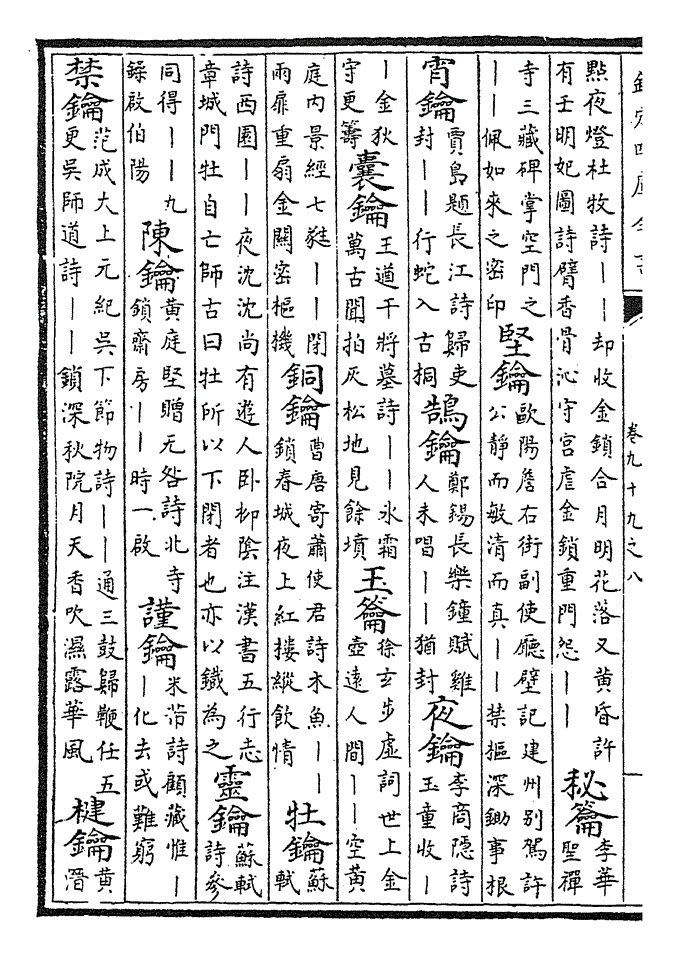 欽定四庫全書
卷九十九之八
點夜燈杜牧詩――却收金鎖合月明花落又黃昏許
有壬明妃圖詩臂香骨沁守宮虐金鎖重門怨――
秘籥
李華
聖禪
寺三藏碑掌空門之
――佩如來之密印
堅鑰
歐陽詹右街副使廳壁記建州別駕許
公靜而敏清而真――禁樞深鋤事根
宵鑰
賈島題長江詩歸吏
封――行蛇入古桐
鵠鑰
鄭錫長樂鐘賦雞
人未唱――猶封
夜鑰
李商隱詩
玉童收―
―金狄
守更籌
囊鑰
王遒干將墓詩――水霜
萬古聞拍灰松地見餘墳
玉籥
徐玄步虛詞世上金
壺遠人間――空黃
庭内景經七蕤――閉
兩扉重扇金關密樞機
銅鑰
曹唐寄蕭使君詩木魚――
鎖春城夜上紅樓縱飲情
牡鑰
蘇
軾
詩西園――夜沈沈尚有遊人卧柳陰注漢書五行志
章城門牡自亡師古曰牡所以下閉者也亦以鐵為之
靈鑰
蘇軾
詩參
同得――九
鏁啟伯陽
陳鑰
黃庭堅贈元咎詩北寺
鎖齋房――時一啟
謹鑰
米芾詩顧藏惟―
―化去或難窮
禁鑰
范成大上元紀吳下節物詩――通三鼓歸鞭任五
更吳師道詩――鎖深秋院月天香吹濕露華風
楗鑰
黃
溍